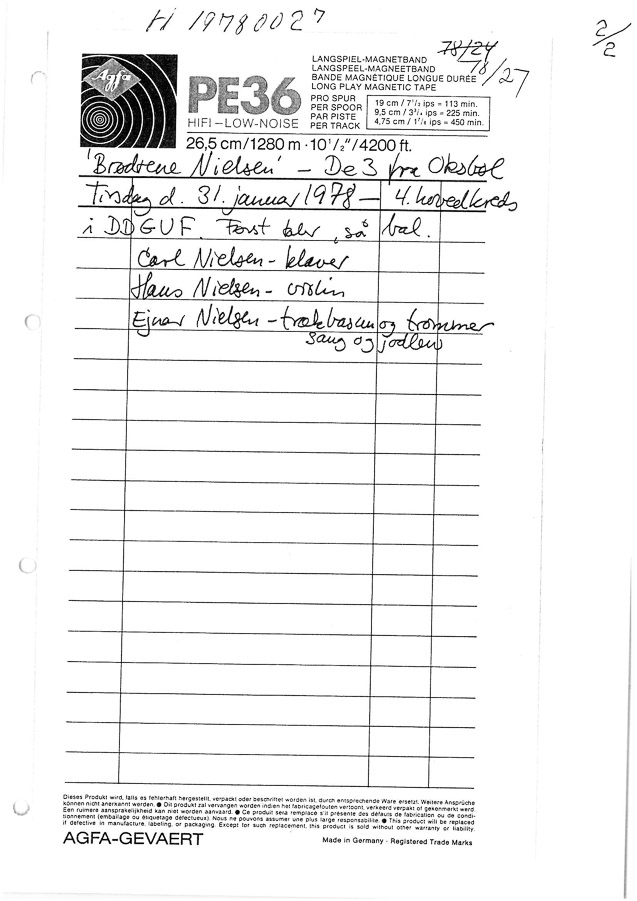 H 19780027
2/2
78/24
78/27
Agfa
PE36
HIFI-LOW-NOISE
LANGSPIEL-MAGNETBAND
LANGSPEEL-MAGNEETBAND
BANDE MAGNÉTIQUE LONGUE DURÉE
LONG PLAY MAGNETIC TAPE
PRO SPUR
PER SPOOR
PAR PISTE
PER TRACK
19 cm / 7 1/2 ips = 113 min.
9,5 cm / 3 3/4 ips = 225 min.
4,75 cm / 1 7/8 ips = 450 min.
26,5 cm/1280 m · 10 1/2"/4200 ft.
'Brødrene Nielsen' - De 3 fra Oksbøl
Tirsdag d. 31. januar 1978 - 4. hovedkreds
i DDGUF. Først blev „så" bal.
Carl Nielsen - klaver
Hans Nielsen - violin
Ejnar Nielsen - trækbasun og trommer
sang og jodlen
Dieses Produkt wird, falls es fehlerhaft hergestellt, verpackt oder beschriftet worden ist, durch entsprechende Ware ersetzt. Weitere Ansprüche
können nicht anerkannt werden. ● Dit produkt zal vervangen worden indien het fabricagefouten vertoont, verkeerd verpakt of gekenmerkt werd.
Een ruimere aansprakelijkheid kan niet worden aanvaard. ● Ce produit sera remplacé s'il présente des défauts de fabrication ou de condi-
tionnement (emballage ou étiquetage défectueux). Nous ne pouvons assumer une plus large responsabilité. ● This product will be replaced
if defective in manufacture, labeling, or packaging. Except for such replacement, this product is sold without other warranty or liability.
AGFA-GEVAERT
Made in Germany · Registered Trade Marks